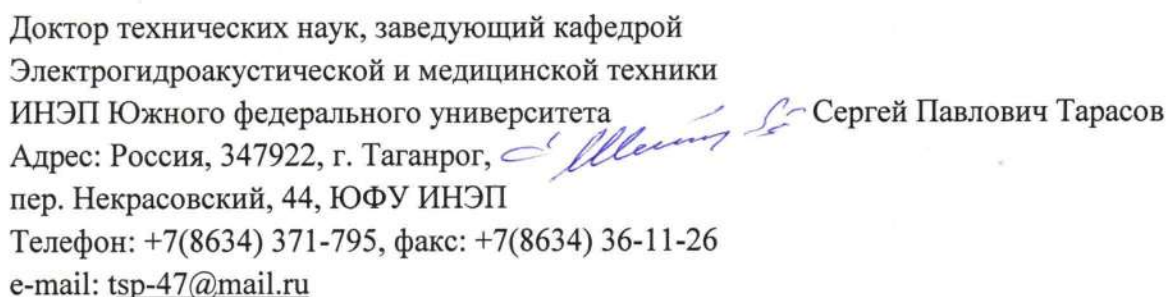 Доктор технических наук, заведующий кафедрой
Электрогидроакустической и медицинской техники
ИНЭП Южного федерального университета Сергей Павлович Тарасов
Адрес: Россия, 347922, г. Таганрог,
пер. Некрасовский, 44, ЮФУ ИНЭП
Телефон: +7(8634) 371-795, факс: +7(8634) 36-11-26
e-mail: tsp-47@mail.ru